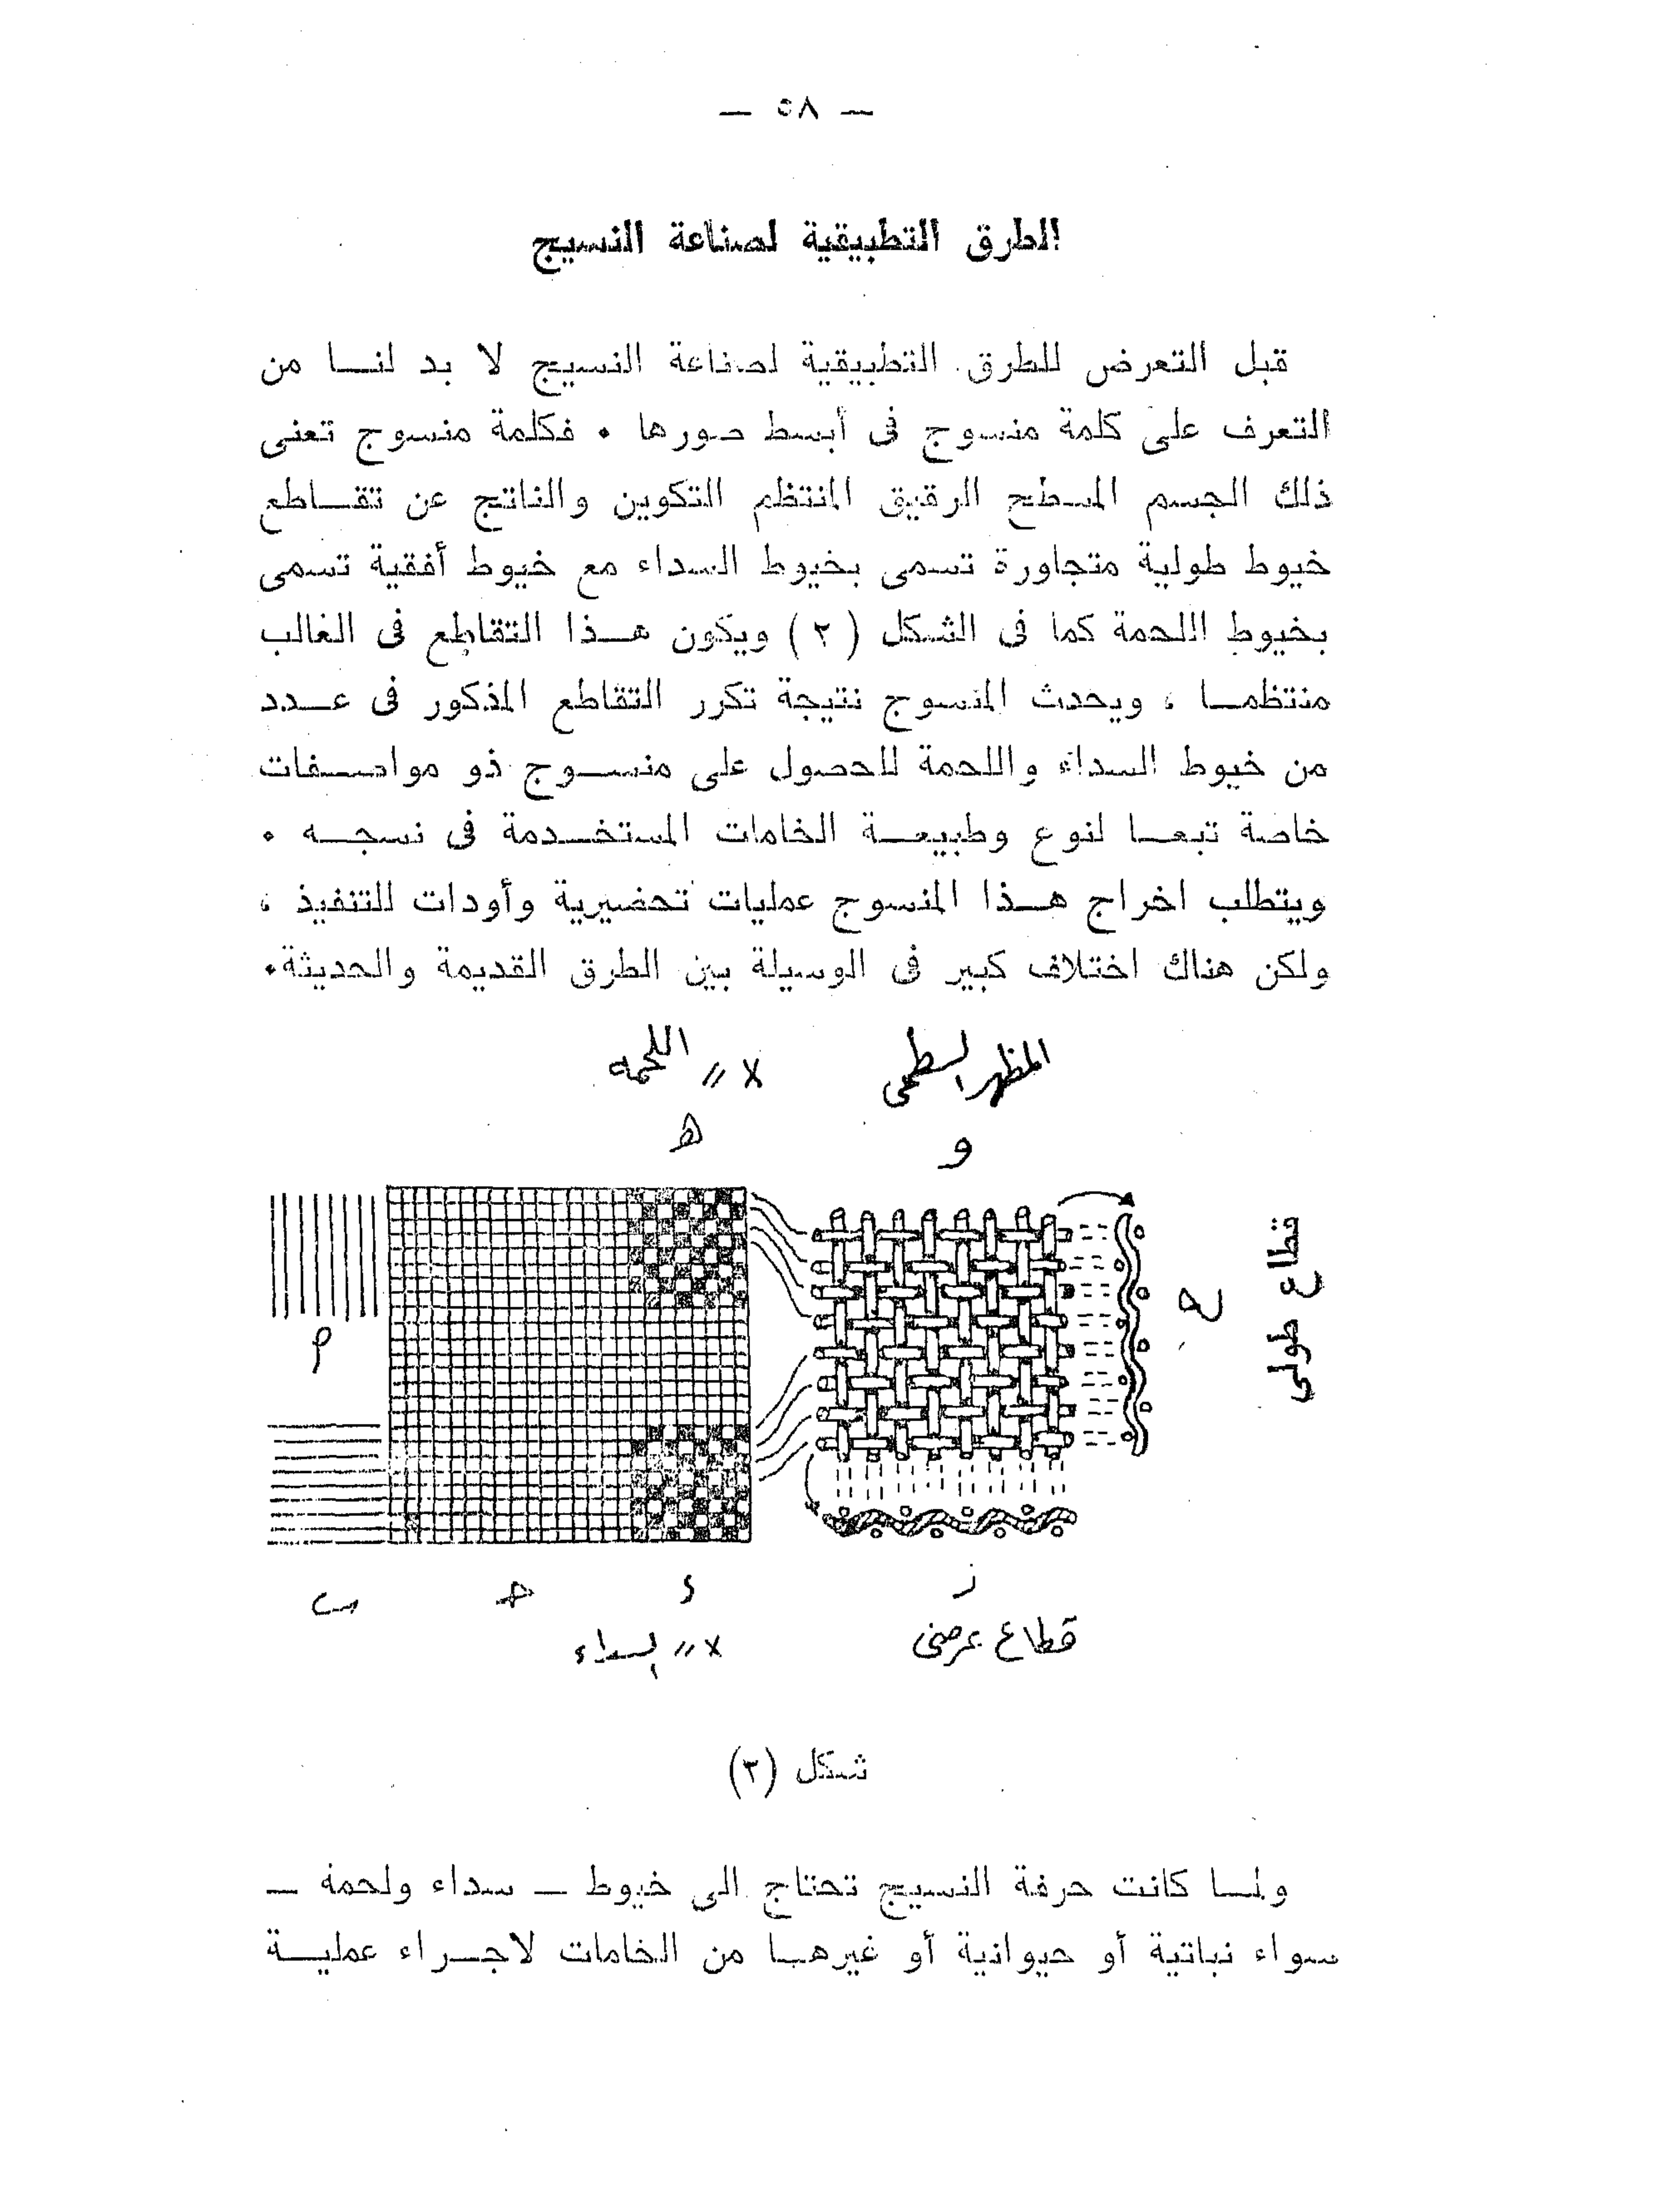 — ٥٨ —
الطرق التطبيقية لصناعة النسيج
قبل التعرض للطرق التطبيقية لصناعة النسيج لا بد لنا من
التعرف على كلمة منسوج فى أبسط صورها . فكلمة منسوج تعنى
ذلك الجسم المسطح الرقيق المنتظم التكوين والناتج عن تقاطع
خيوط طولية متجاورة تسمى بخيوط السداء مع خيوط أفقية تسمى
بخيوط اللحمة كما فى الشكل (٢) ويكون هذا التقاطع فى الغالب
منتظما ، ويحدث المنسوج نتيجة تكرر التقاطع المذكور فى عدد
من خيوط السداء واللحمة للحصول على منسوج ذو مواصفات
خاصة تبعا لنوع وطبيعة الخامات المستخدمة فى نسجه .
ويتطلب اخراج هذا المنسوج عمليات تحضيرية وأودات للتنفيذ ،
ولكن هناك اختلاف كبير فى الوسيلة بين الطرق القديمة والحديثة.
المظهر السطحى
x // اللحمه
و
هـ
قطاع طولى
ح
م
ز
ء
حـ
ب
قطاع عرضى
x // السداء
شكل (٢)
ولما كانت حرفة النسيج تحتاج الى خيوط — سداء ولحمة —
سواء نباتية أو حيوانية أو غيرها من الخامات لاجراء عملية